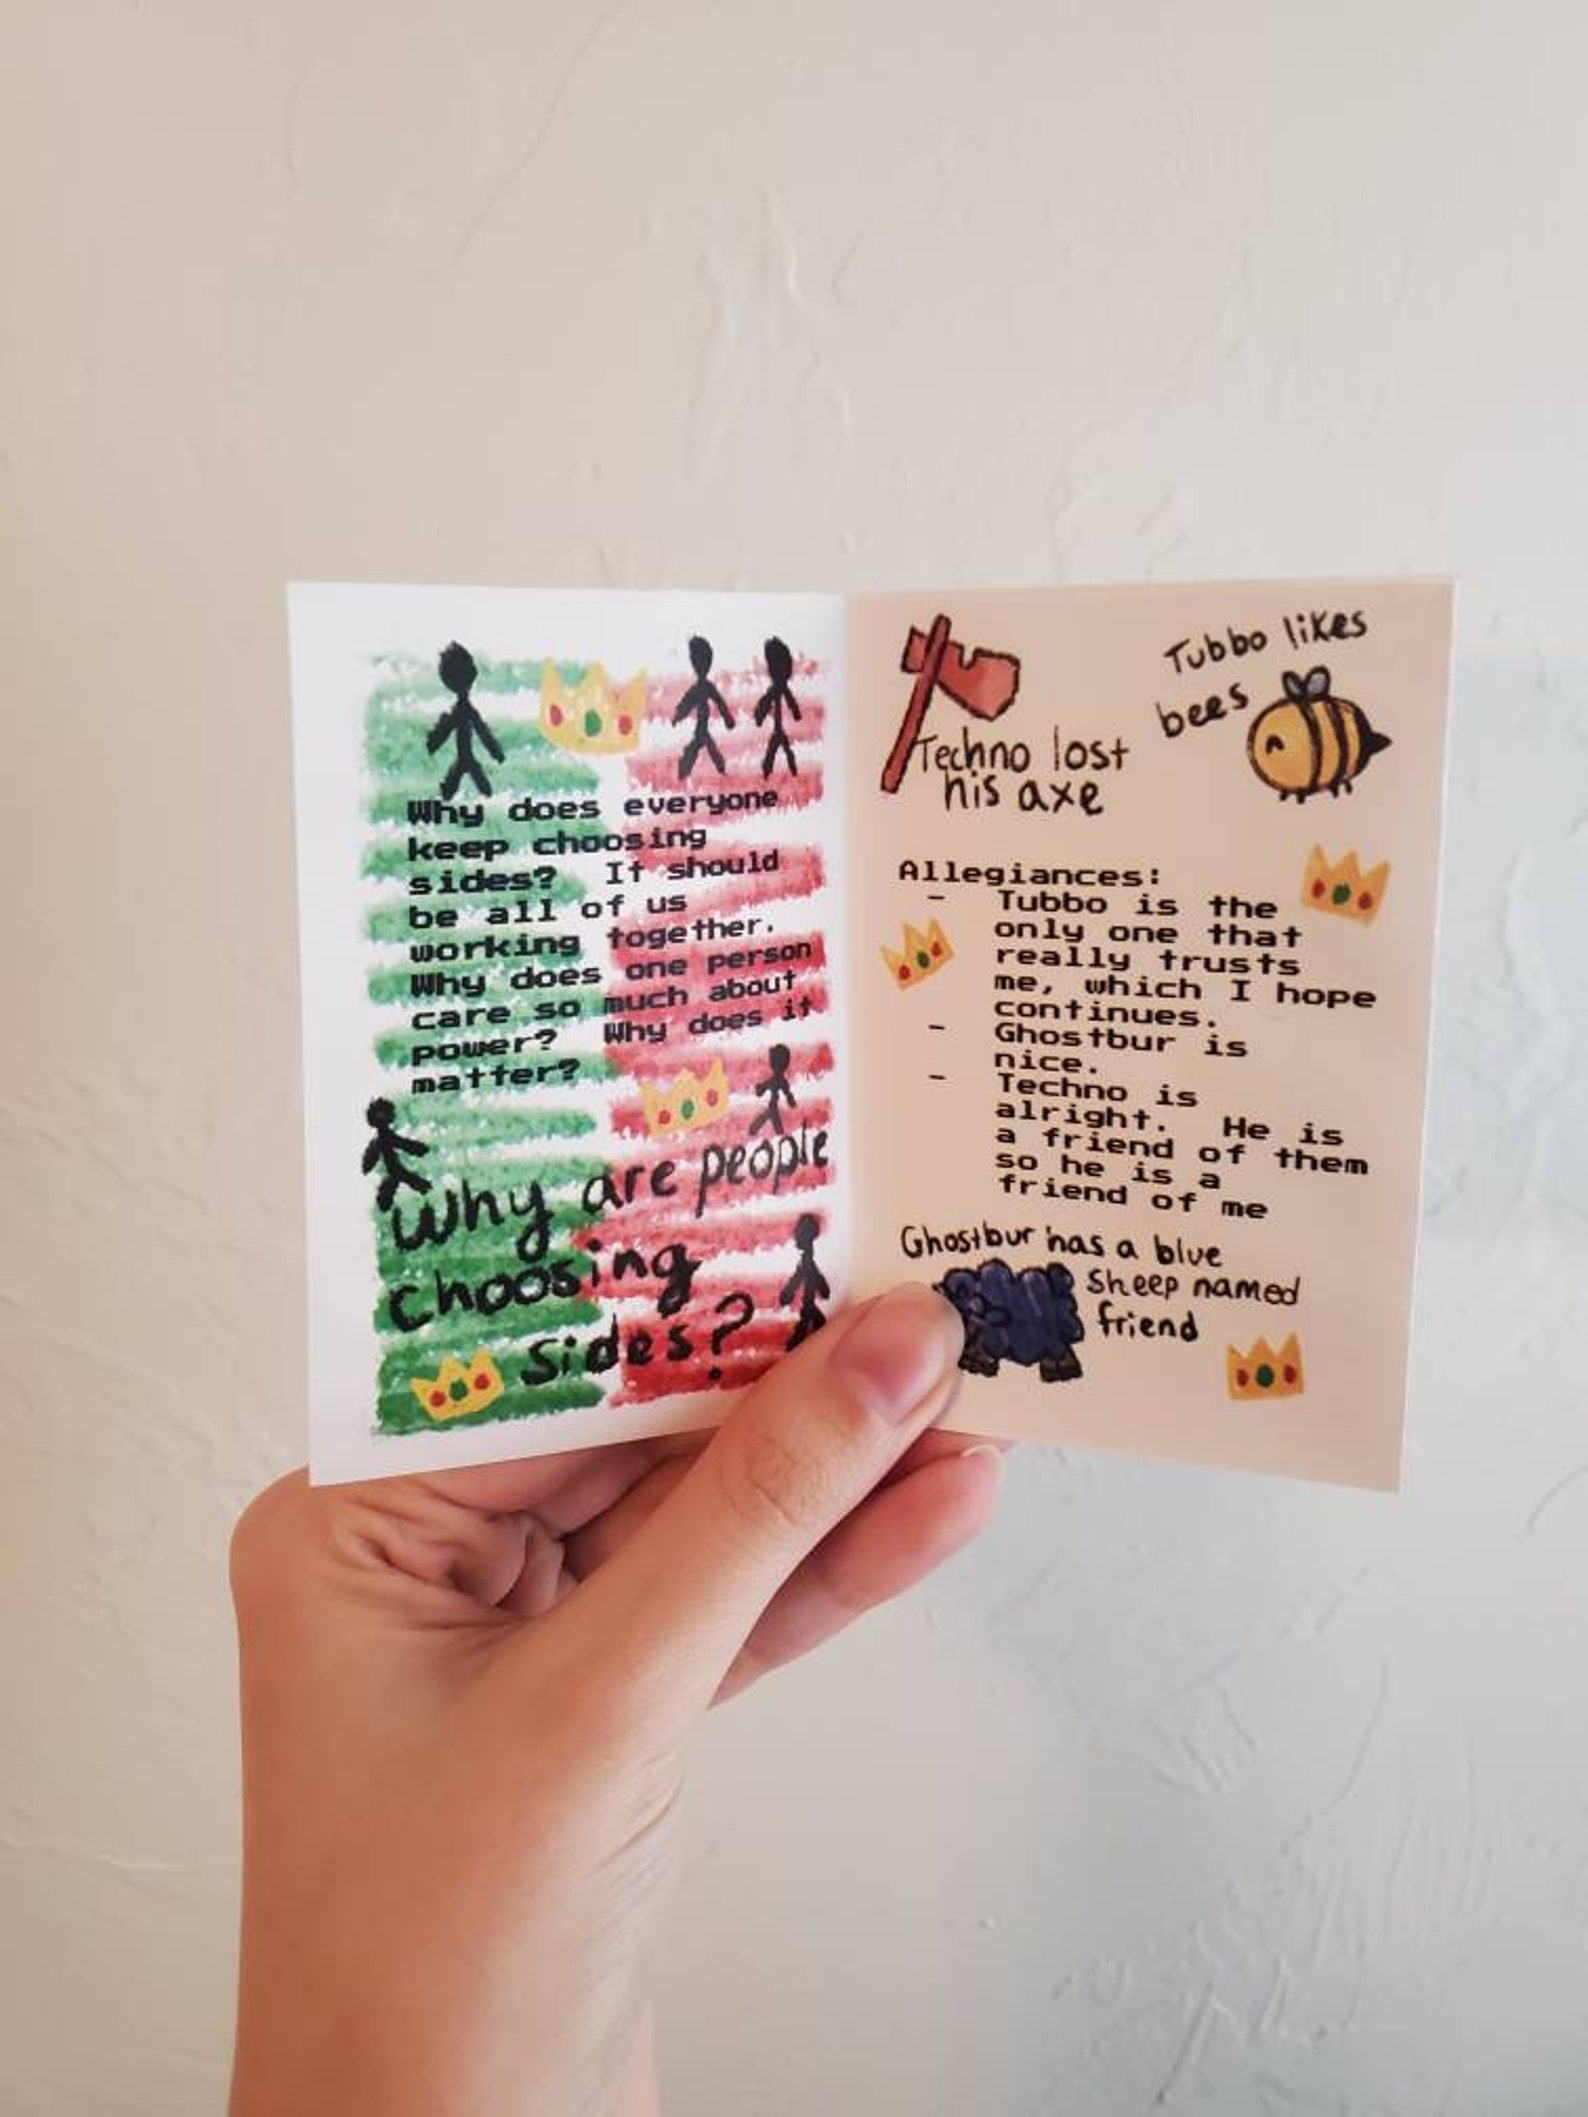 Why does everyone
keep choosing
sides? It should
be all of us
working together.
Why does one person
care so much about
power? Why does it
matter?
Why are people
choosing
sides?
Tubbo likes
bees
Techno lost
his axe
Allegiances:
- Tubbo is the
only one that
really trusts
me, which I hope
continues.
- Ghostbur is
nice.
- Techno is
alright. He is
a friend of them
so he is a
friend of me
Ghostbur has a blue
sheep named
friend